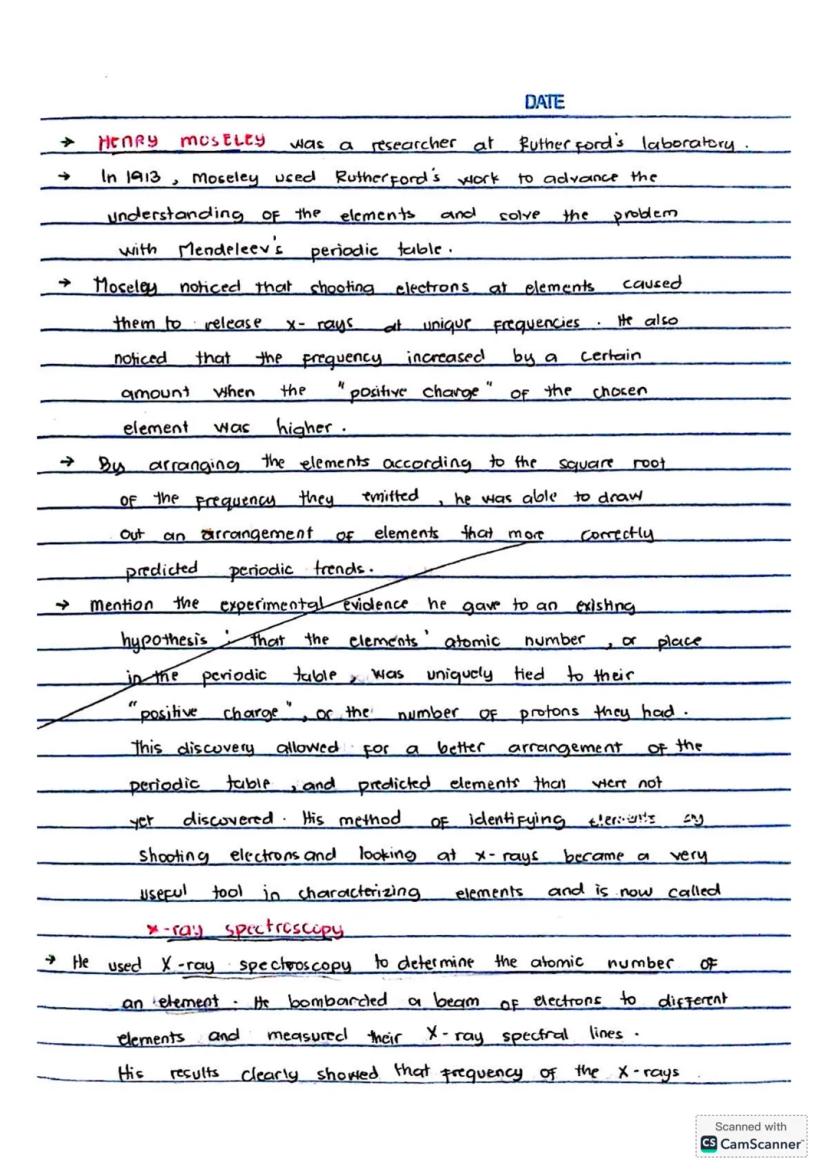 DATE
→ HENRY MOSELEY was a researcher at Rutherford's laboratory.
→ In 1913, Moseley used Rutherford's work to advance the
understanding of the elements and solve the problem
with Mendeleev's periodic table.
→ Moseley noticed that shooting electrons at elements caused
them to release x-rays at unique frequencies. He also
noticed that the frequency increased by a certain
amount when the "positive charge" of the chosen
element was higher.
→ By arranging the elements according to the square root
of the frequency they emitted, he was able to draw
out an arrangement of elements that more correctly
predicted periodic trends.
→ Mention the experimental evidence he gave to an existing
hypothesis: that the elements' atomic number, or place
in the periodic table, was uniquely tied to their
"positive charge", or the number of protons they had.
This discovery allowed for a better arrangement of the
periodic table, and predicted elements that were not
yet discovered. His method of identifying elements by
shooting electrons and looking at x-rays became a very
useful tool in characterizing elements and is now called
x-ray spectroscopy
→ He used X-ray spectroscopy to determine the atomic number of
an element. He bombarded a beam of electrons to different
elements and measured their X-ray spectral lines.
His results clearly showed that frequency of the X-rays
Scanned with
CS CamScanner